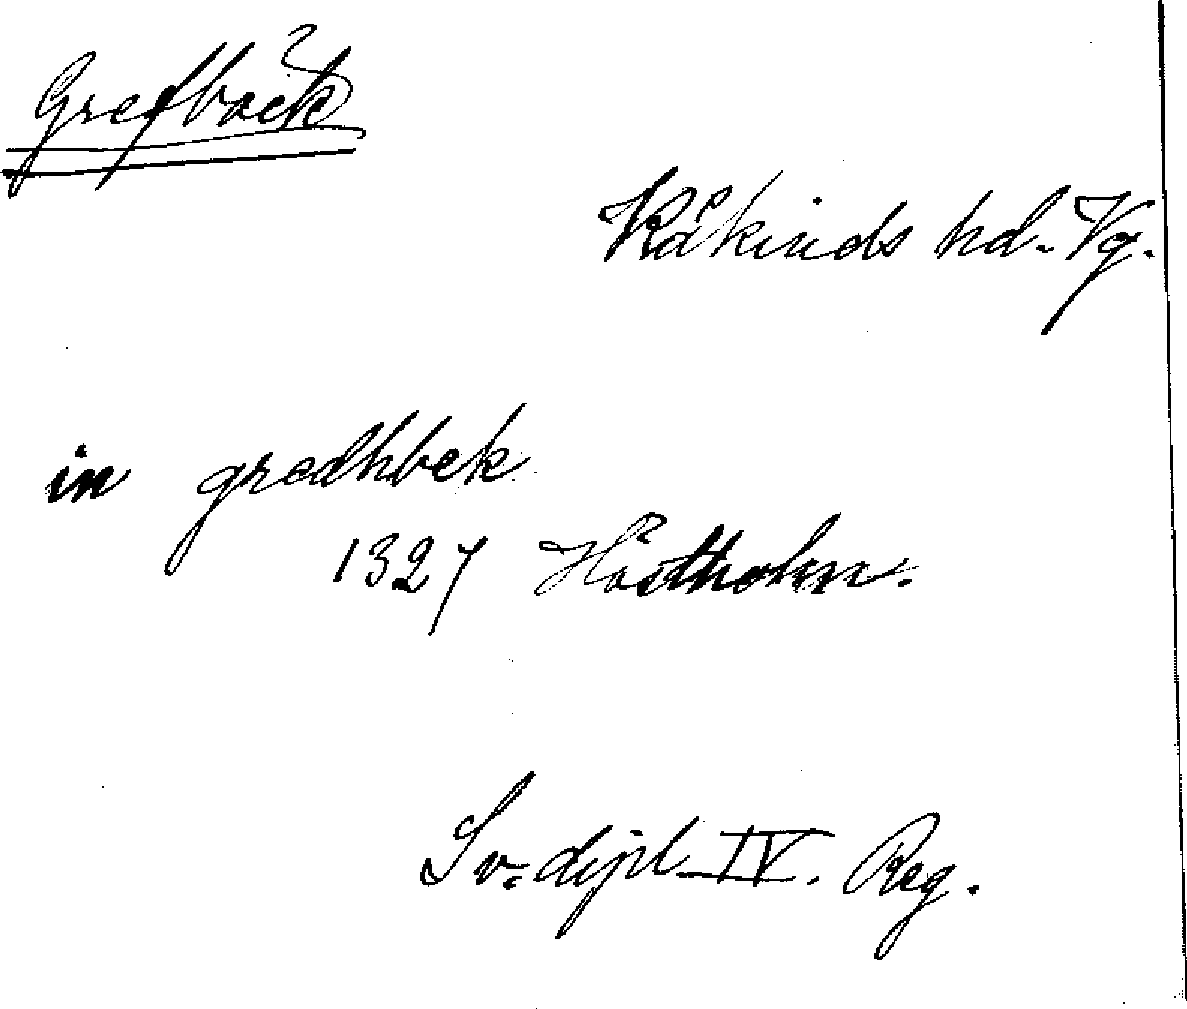 Grefbäck
Kåkinds hd. Vg.
in gredhbek
1327 Höstholm.
Sv. dipl IV. Reg.